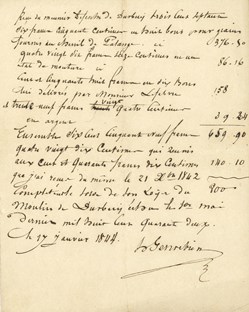 Reçu de monsieur de Durbuy trois cens septante
six francs centimes en huit bons pour grains
fournis au moulin de ci 376-50
quatre vingt six francs seize centimes en un 86.16
état de mouture
Cens et cinquante huit francs en six bons 158
lui délivrés par Monsieur Lefevre
et trente neuf francs vingt quatre centimes 39.24
en argent
Ensemble six cens cinquante neuf francs 659.90
quatre vingt dix centimes qui réunis
aux cent et quarante francs dix centimes 140.10
que j'ai reçu du même le 21 Xbre 1842
de son du 800
Moulin de Durbuy échu le 1er mai
Dernier mil huit cens quarante deux.
Ce 17 janvier 1844.